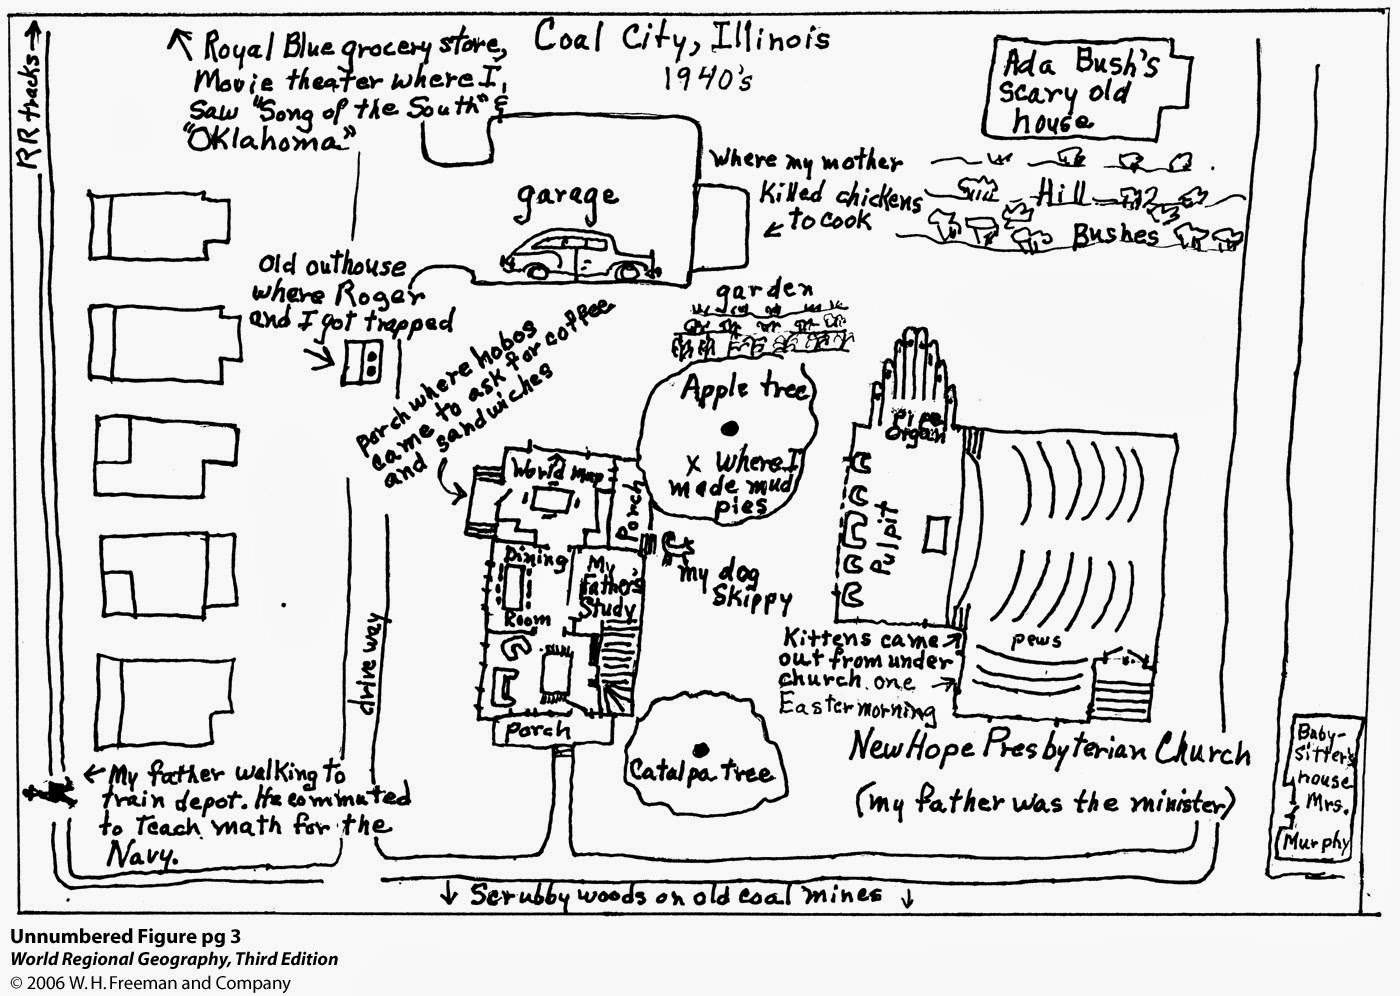 Coal City, Illinois
1940's
RR tracks
Royal Blue grocery store,
Movie theater where I
saw "Song of the South" &
"OKlahoma"
Ada Bush's
scary old
house
where my mother
Killed chickens
to cook
Hill
Bushes
garage
Old outhouse
where Roger
and I got trapped
garden
porch where hobos
came to ask for coffee
and sandwiches
Apple tree
x where I
made mud
pies
Pipe
Organ
World Map
Porch
Pulpit
Dining
Room
My
Father's
Study
my dog
Skippy
pews
Kittens came
out from under
church one
Easter morning
drive way
Porch
Catalpa tree
New Hope Presbyterian Church
(my father was the minister)
Baby-
sitter's
house
Mrs.
Murphy
My father walking to
train depot. He commuted
to teach math for the
Navy.
Scrubby woods on old coal mines
Unnumbered Figure pg 3
World Regional Geography, Third Edition
© 2006 W. H. Freeman and Company